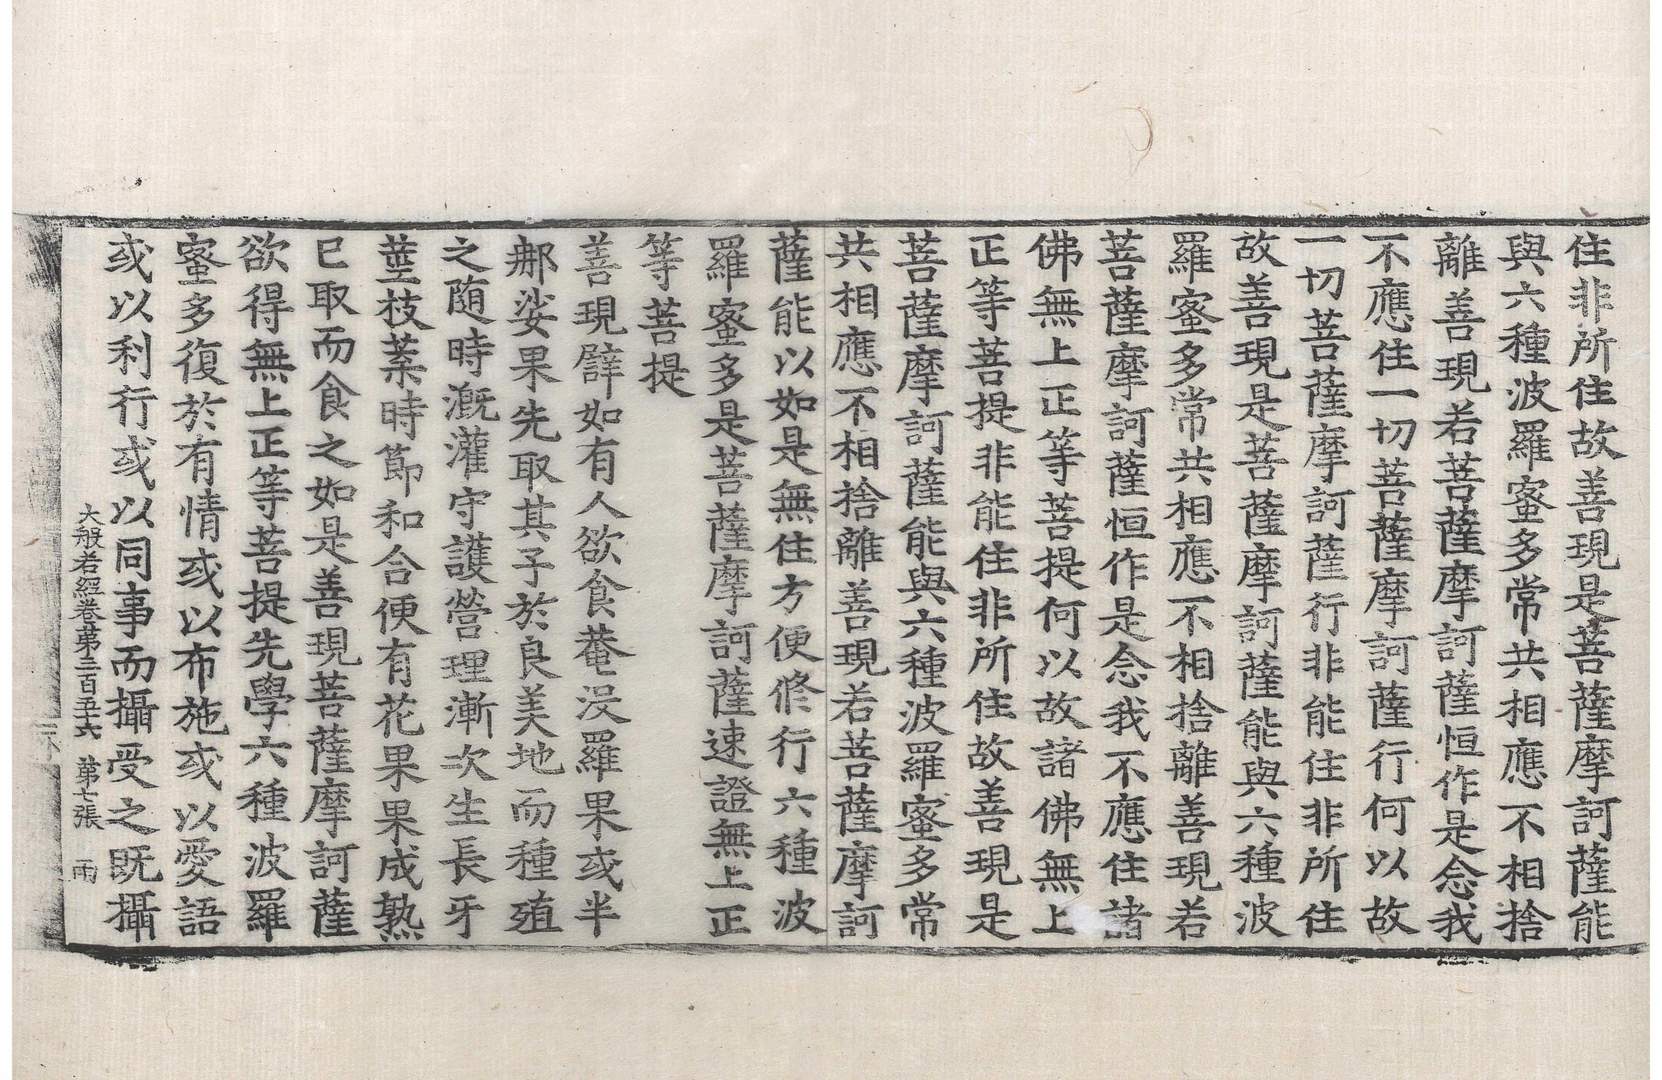 住非所住故善現是菩薩摩訶薩能
與六種波羅蜜多常共相應不相捨
離善現若菩薩摩訶薩恒作是念我
不應住一切菩薩摩訶薩行何以故
一切菩薩摩訶薩行非能住非所住
故善現是菩薩摩訶薩能與六種波
羅蜜多常共相應不相捨離善現若
菩薩摩訶薩恒作是念我不應住諸
佛無上正等菩提何以故諸佛無上
正等菩提非能住非所住故善現是
菩薩摩訶薩能與六種波羅蜜多常
共相應不相捨離善現若菩薩摩訶
薩能以如是無住方便修行六種波
羅蜜多是菩薩摩訶薩速證無上正
等菩提
善現譬如有人欲食菴没羅果或半
郍娑果先取其子於良美地而種殖
之随時溉灌守護營理漸次生長牙
莖枝葉時節和合便有花果果成熟
已取而食之如是善現菩薩摩訶薩
欲得無上正等菩提先學六種波羅
蜜多復於有情或以布施或以愛語
或以利行或以同事而攝受之既攝
大般若經卷第三百五十六 第七張 雨